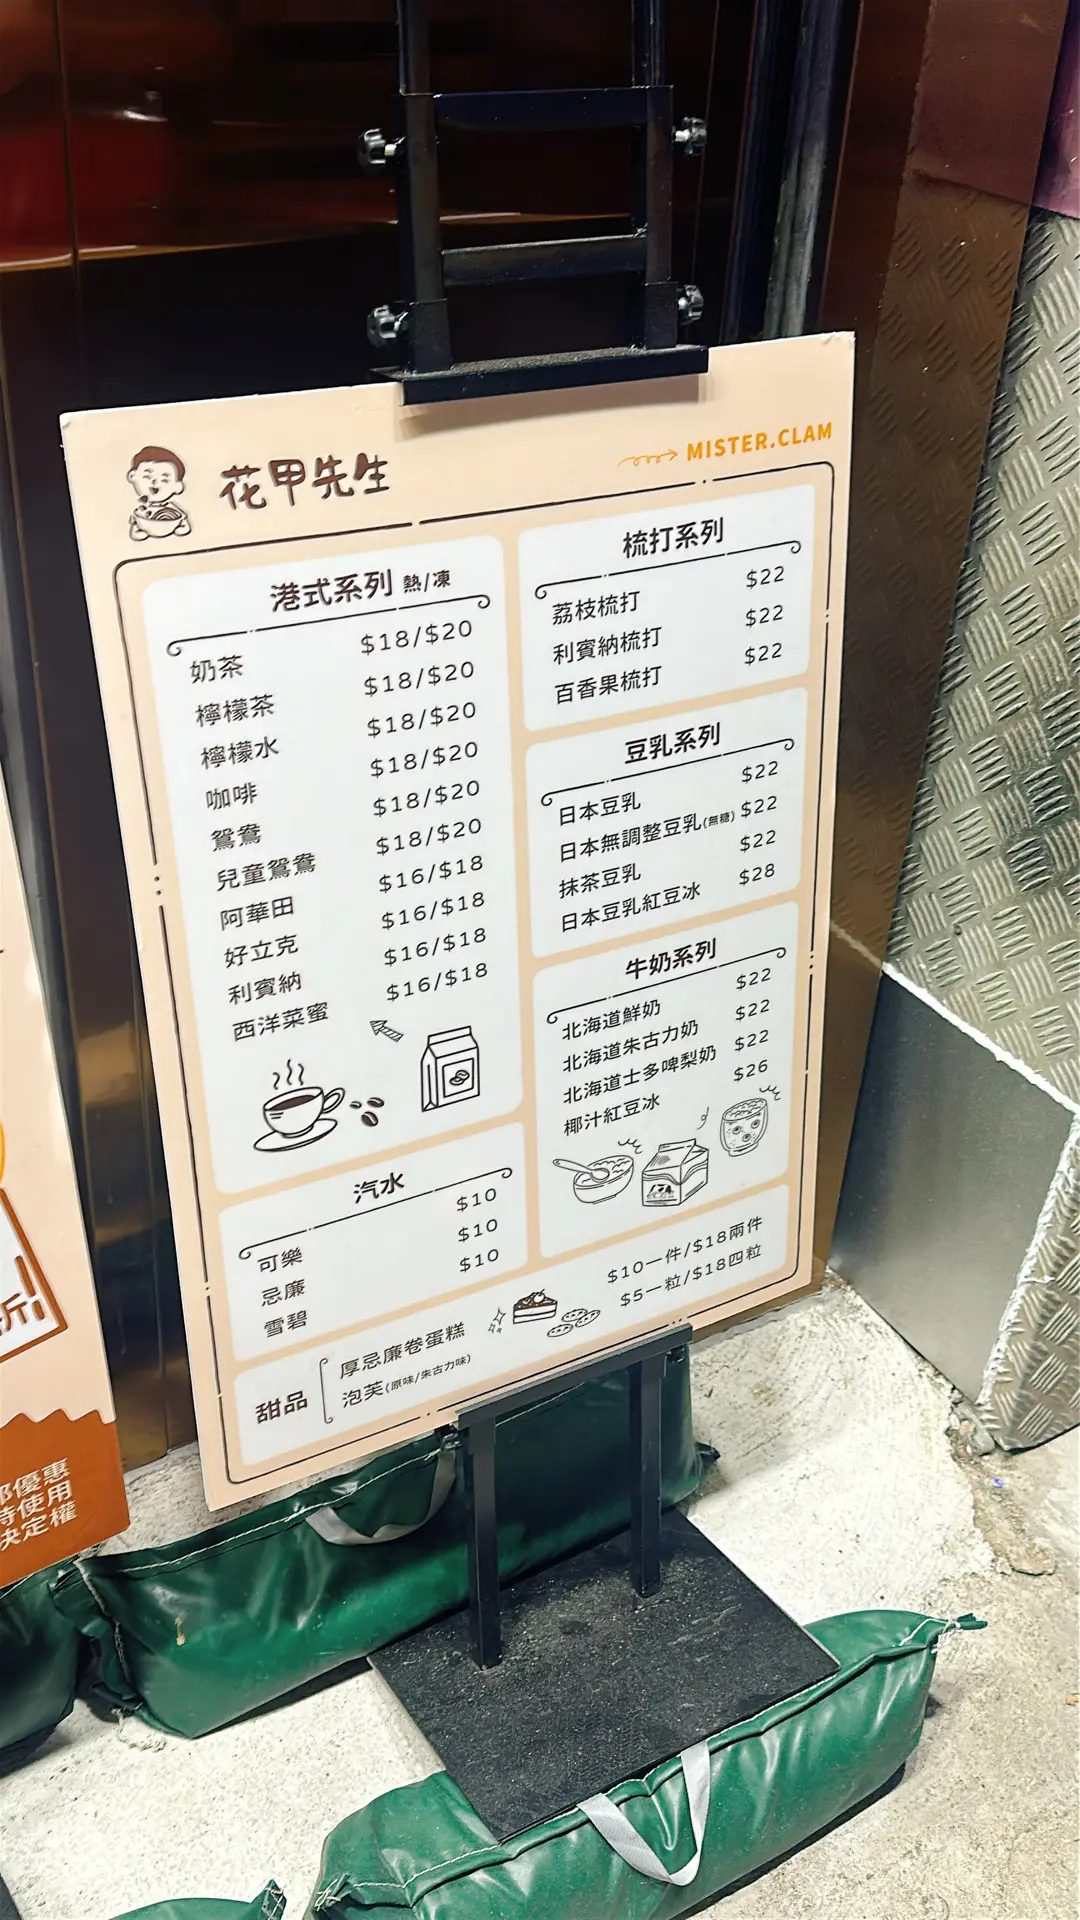 花甲先生
MISTER.CLAM
港式系列 熱/凍
奶茶 $18/$20
檸檬茶 $18/$20
檸檬水 $18/$20
咖啡 $18/$20
鴛鴦 $18/$20
兒童鴛鴦 $18/$20
阿華田 $16/$18
好立克 $16/$18
利賓納 $16/$18
西洋菜蜜 $16/$18
汽水
可樂 $10
忌廉 $10
雪碧 $10
梳打系列
荔枝梳打 $22
利賓納梳打 $22
百香果梳打 $22
豆乳系列
日本豆乳 $22
日本無調整豆乳(無糖) $22
抹茶豆乳 $22
日本豆乳紅豆冰 $28
牛奶系列
北海道鮮奶 $22
北海道朱古力奶 $22
北海道士多啤梨奶 $22
椰汁紅豆冰 $26
甜品
厚忌廉卷蛋糕 $10一件/$18兩件
泡芙(原味/朱古力味) $5一粒/$18四粒
折!
優惠
時使用
決定權